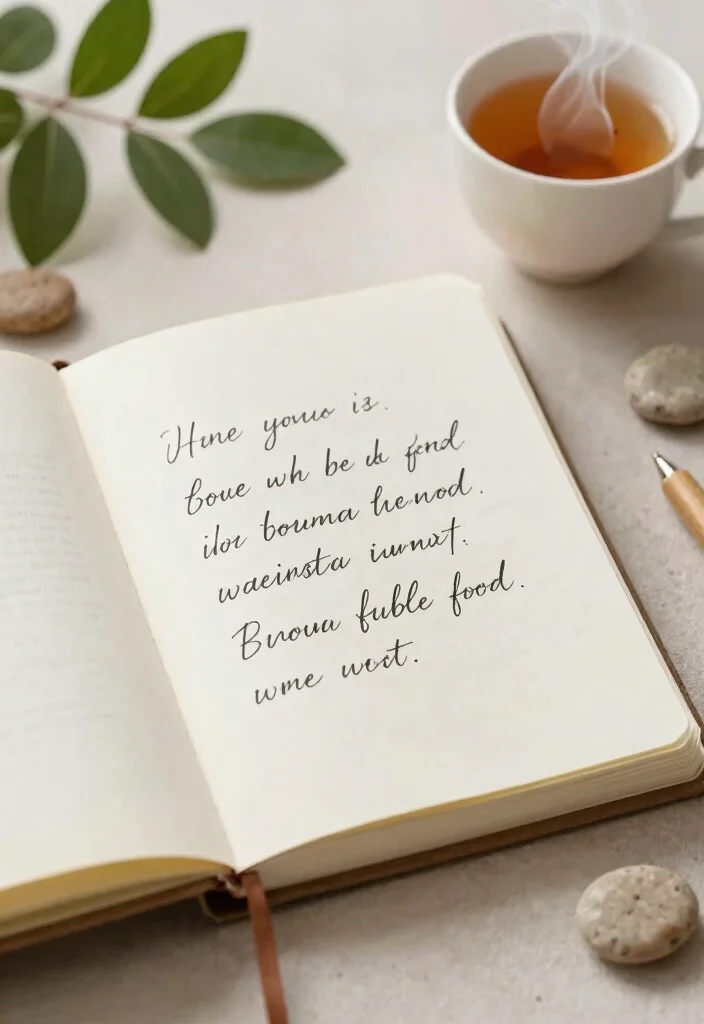 Hune youuo is.
boue wh be du fend
ilor bouma he nod.
waeinsta iuunat.
Bnoua fubble food.
wme woct.